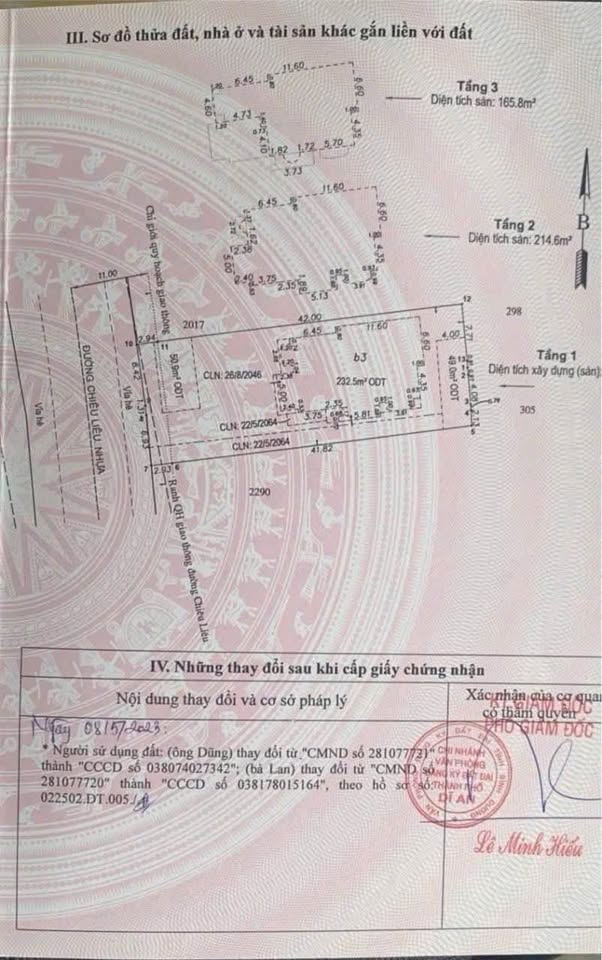 III. Sơ đồ thửa đất, nhà ở và tài sản khác gắn liền với đất
11.60
6.45
6.60
4.60
4.73
4.35
4.10
1.82
1.72
5.70
3.73
Tầng 3
Diện tích sàn: 165.8m²
11.60
6.45
6.60
4.35
2.38
5.00
2.40
3.75
2.35
5.13
Tầng 2
Diện tích sàn: 214.6m²
B
Chỉ giới quy hoạch giao thông
11.00
2017
42.00
12
298
10
2.94
11
6.45
11.60
6.60
4.00
7.71
Tầng 1
Diện tích xây dựng (sàn):
305
ĐƯỜNG CHIÊU LIÊU, NHỰA
Vỉa hè
Vỉa hè
6.42
50.9m² ODT
CLN: 26/8/2046
b3
232.5m² ODT
4.35
49.0m² ODT
13
4.00
2.13
5.00
3.75
2.35
5.81
3.61
0.79
CLN: 22/5/2064
CLN: 22/5/2064
6.93
41.82
5
7
2.93
6
2290
Ranh QH giao thông đường Chiêu Liêu
IV. Những thay đổi sau khi cấp giấy chứng nhận
Nội dung thay đổi và cơ sở pháp lý
Xác nhận của cơ quan
có thẩm quyền
KT.GIÁM ĐỐC
PHÓ GIÁM ĐỐC
Ngày 08/5/2023:
* Người sử dụng đất: (ông Dũng) thay đổi từ "CMND số 281077721"
thành "CCCD số 038074027342"; (bà Lan) thay đổi từ "CMND số
281077720" thành "CCCD số 038178015164", theo hồ sơ số:
022502.DT.005./.
CHI NHÁNH
VĂN PHÒNG
ĐĂNG KÝ ĐẤT ĐAI
THÀNH PHỐ
DĨ AN
Lê Minh Hiếu